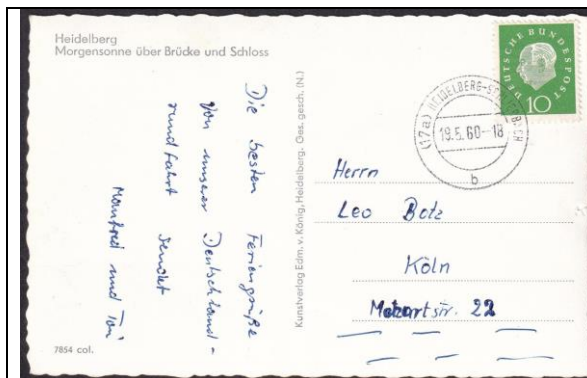 Heidelberg
Morgensonne über Brücke und Schloss
Die besten Feriengrüße
von unserer Deutschland-
rundfahrt sendet
Manfred und
7854 col.
Kunstverlag Edm. v. König, Heidelberg. Ges. gesch. (N.)
DEUTSCHE BUNDESPOST
10
(17a)
19.5.60-18
b
Herrn
Leo Botz
Köln
Mozartstr. 22